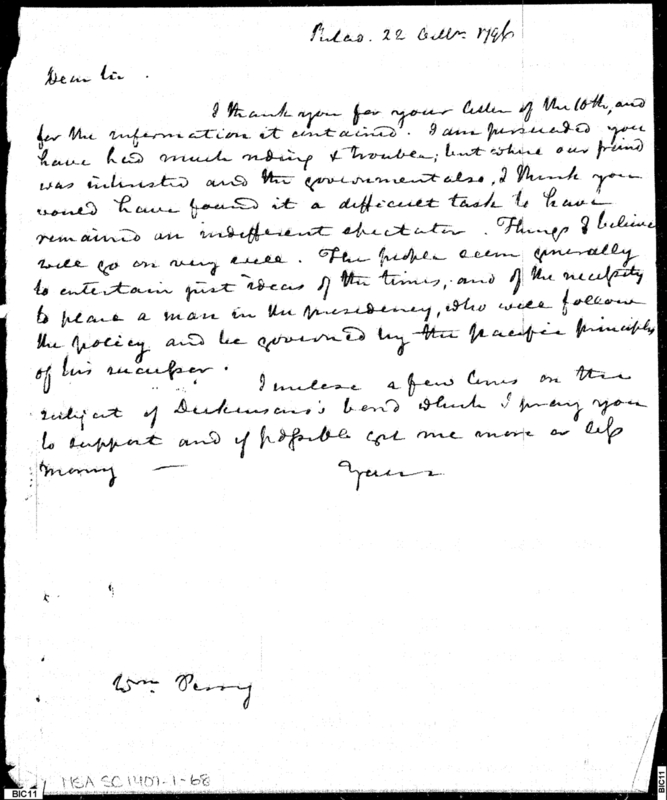 Philaa. 22 Octbr. 1796
Dear Sir.
I thank you for your letter of the 10th, and
for the information it contained. I am persuaded you
have had much riding & trouble; but where our friend
was interested and the government also, I think you
would have found it a difficult task to have
remained an indifferent spectator. Things I believe
will go on very well. The people seem generally
to entertain just ideas of the times, and of the necessity
to place a man in the presidency, who will follow
the policy and be governed by the pacific principles
of his
I inclose a few lines on the
subject of Dickinson's bond which I pray you
to support and if possible get me more or less
money —
Yours
Wm. Perry
MSA SC 1407-1-68
BIC11
BIC11